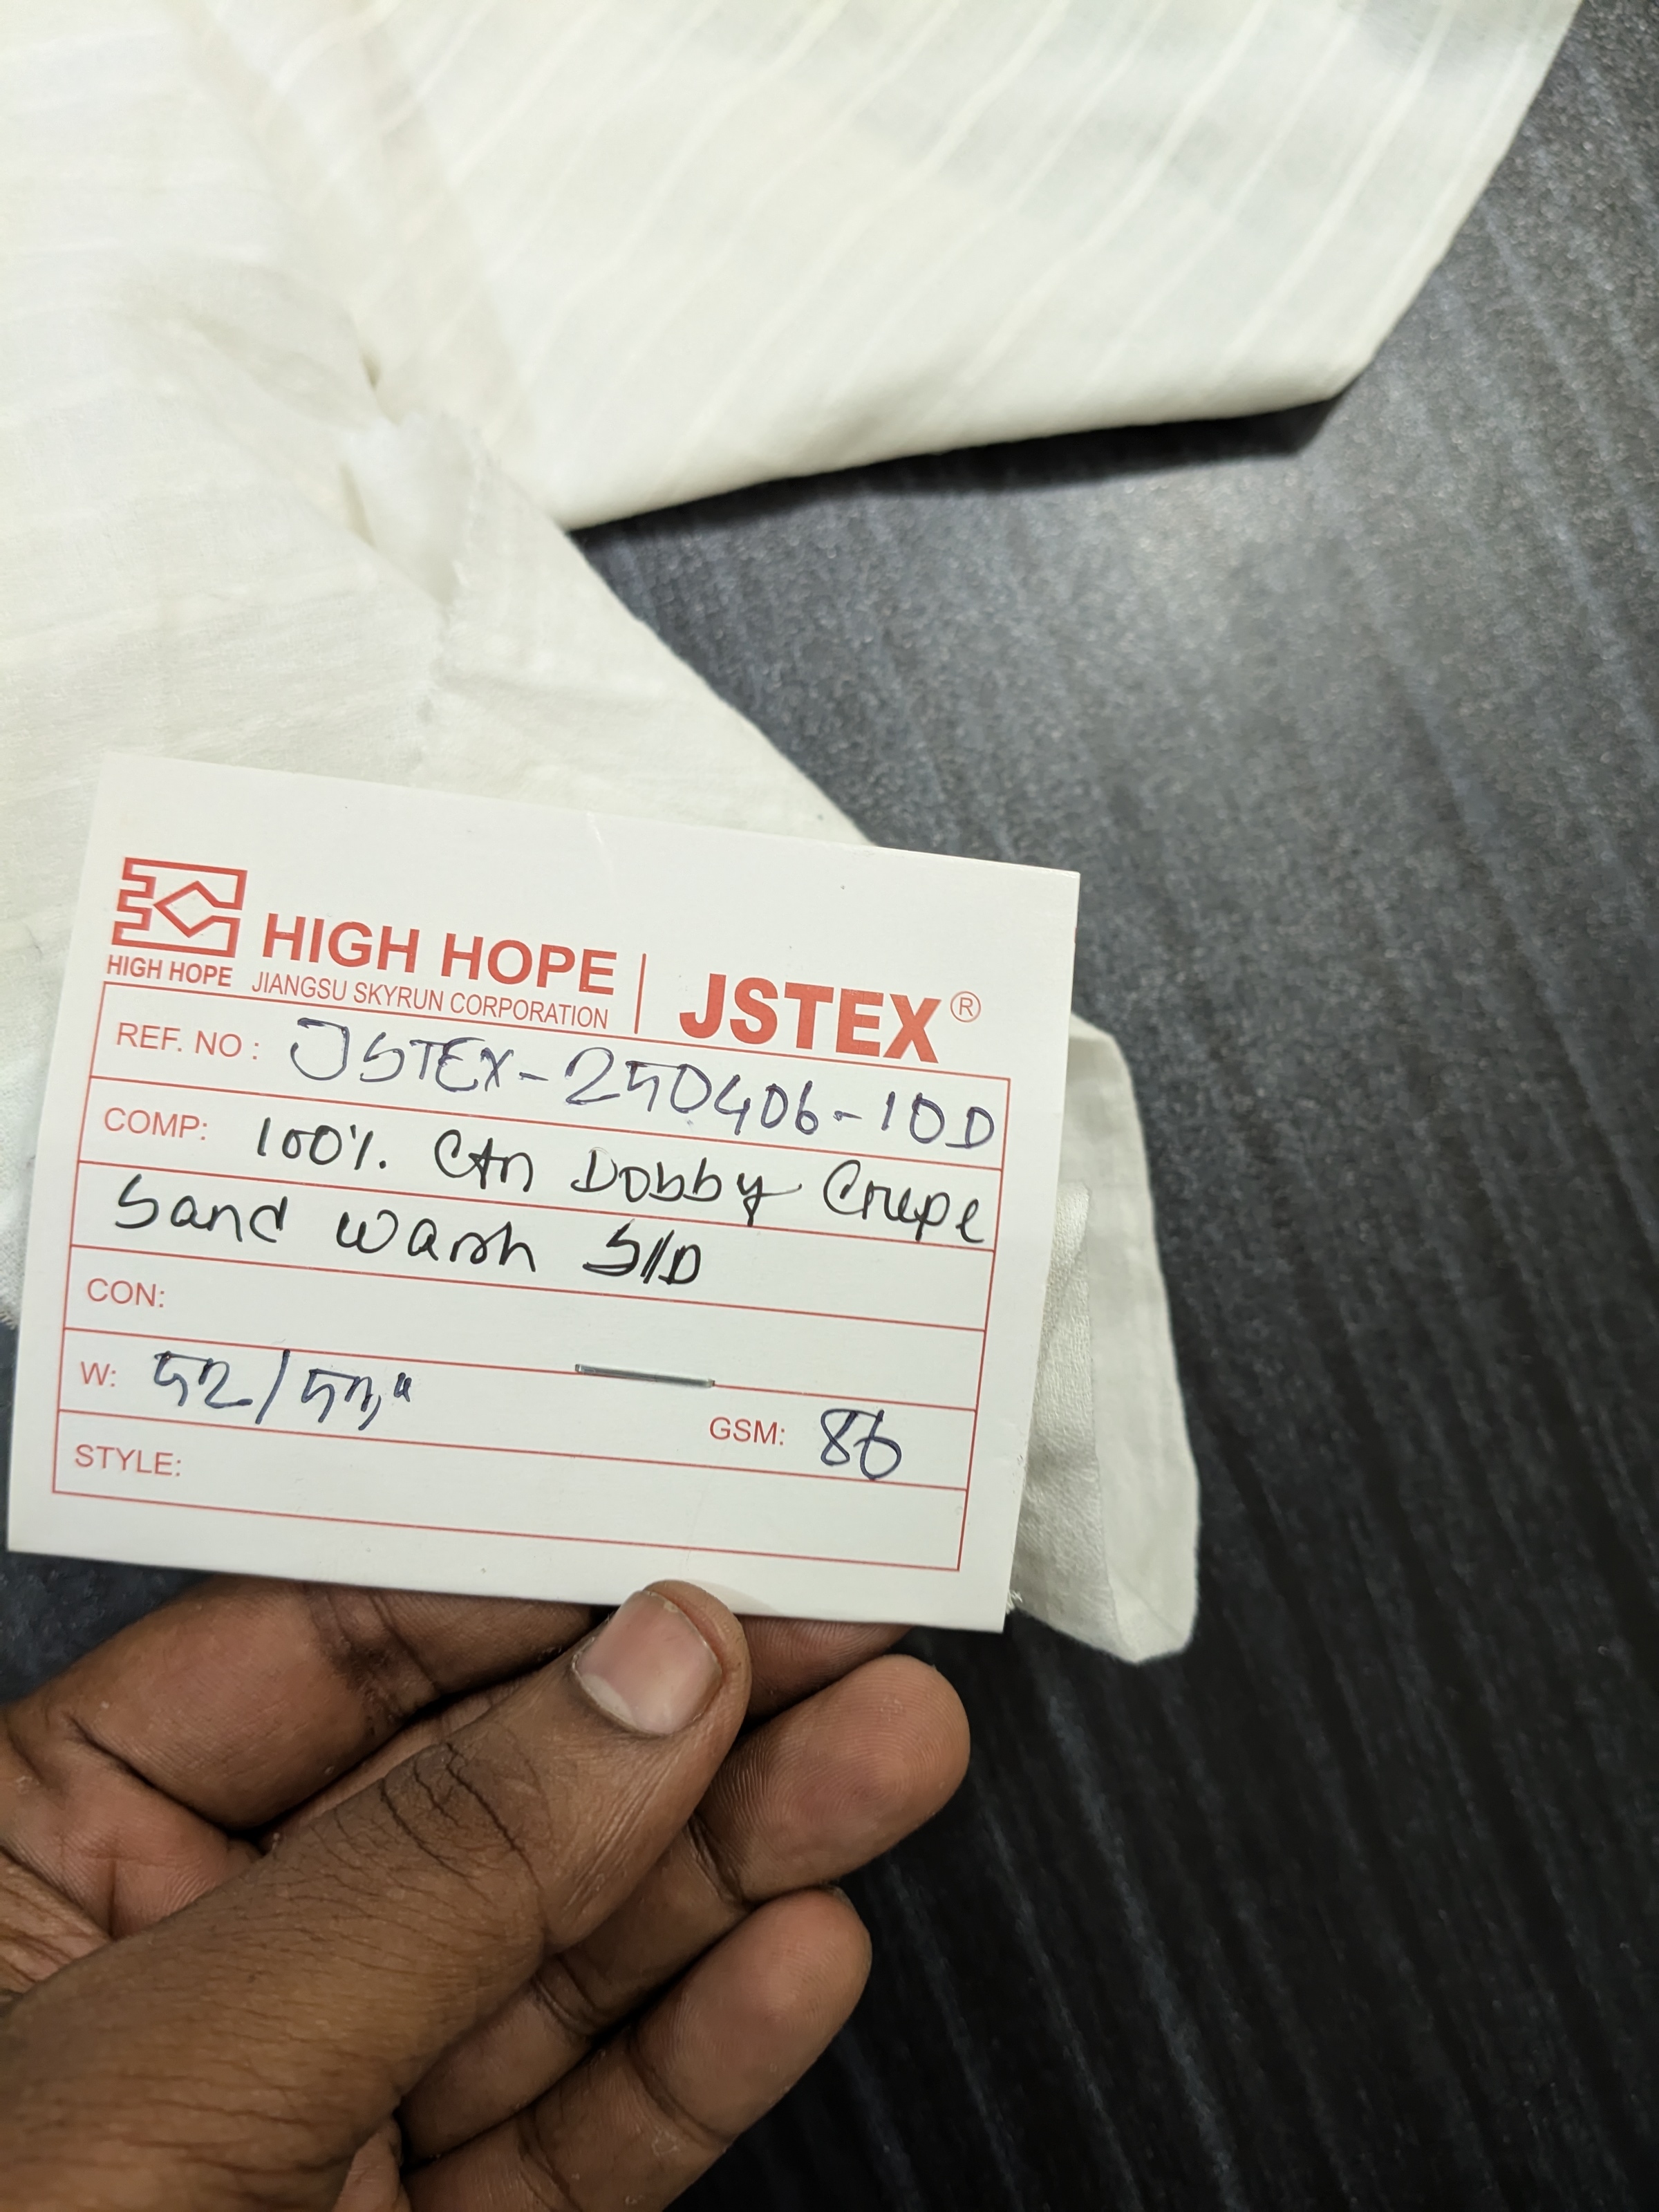 HIGH HOPE
HIGH HOPE
JIANGSU SKYRUN CORPORATION
JSTEX®
REF. NO : JSTEX-250406-10D
COMP: 100%. Ctn Dobby Crepe
Sand Wash S/D
CON:
W: 52/53"
GSM: 86
STYLE: